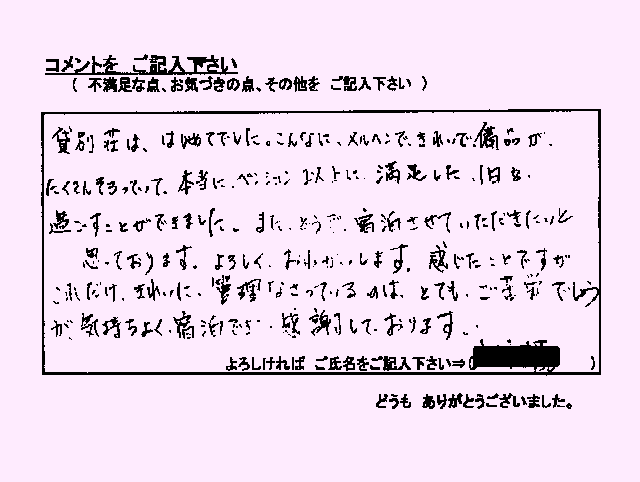 コメントを ご記入下さい
( 不満足な点、お気づきの点、その他を ご記入下さい )
貸別荘は、はじめてでした。こんなに、メルヘンで、きれいで、備品が、
たくさんそろっていて、本当に、ペンション以上に、満足した1日を、
過ごすことができました。また、どうぞ、宿泊させていただきたいと
思っております。よろしく、おねがいします。感じたことですが
これだけ、きれいに、管理なさっているのは、とても、ご苦労でしょう
が、気持ちよく、宿泊でき、感謝しております。
よろしければ ご氏名をご記入下さい⇒( )
どうも ありがとうございました。